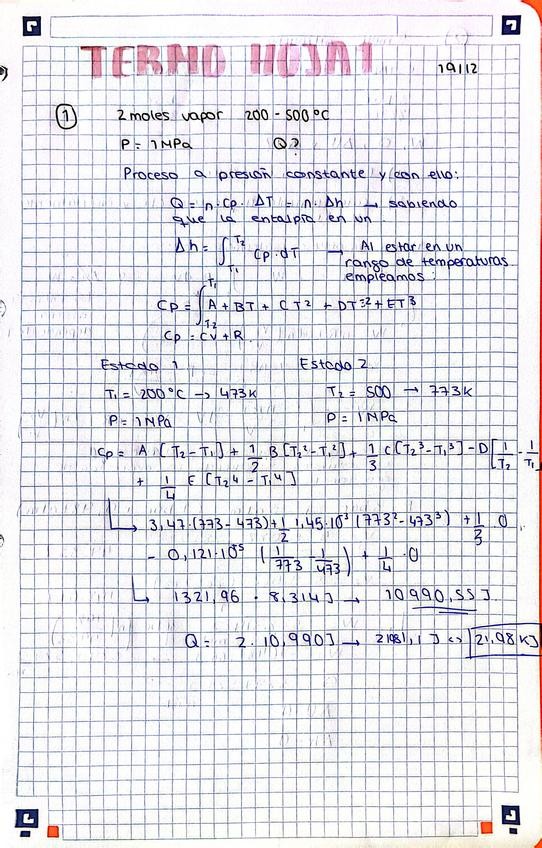 TERMO HOJA 1
19/12
① 2 moles vapor 200 - 500 °C
P = 1 MPa Q?
Proceso a presión constante y con ello:
Q = n · Cp · ΔT = n · Δh → sabiendo
que la entalpía en un
Δh = ∫_{T1}^{T2} Cp · dT → Al estar en un
rango de temperaturas
empleamos:
Cp = ∫_{T2}^{T1} A + BT + CT² + DT⁻² + ET³
Cp = Cv + R
Estado 1 Estado 2
T₁ = 200 °C → 473 K T₂ = 500 → 773 K
P = 1 MPa P = 1 MPa
Cp = A [T₂ - T₁] + 1/2 B [T₂² - T₁²] + 1/3 C [T₂³ - T₁³] - D [1/T₂ - 1/T₁
+ 1/4 E [T₂4 - T₁4]
↳ 3,47 · (773 - 473) + 1/2 1,45 · 10⁻³ (773² - 473³) + 1/3 · 0
- 0,121 · 10⁵ (1/773 - 1/473) + 1/4 · 0
↳ 1321,96 · 8,314 J → 10990,55 J
Q = 2 · 10,990 J → J ⇔ 21,98 KJ